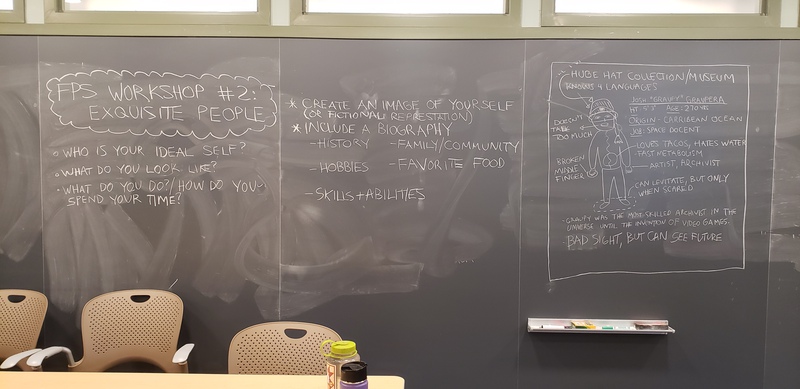 FPS WORKSHOP #2:
EXQUISITE PEOPLE
• WHO IS YOUR IDEAL SELF?
• WHAT DO YOU LOOK LIKE?
• WHAT DO YOU DO?/HOW DO YOU
SPEND YOUR TIME?
* CREATE AN IMAGE OF YOURSELF
(OR FICTIONAL REPRESTATION)
* INCLUDE A BIOGRAPHY
-HISTORY
-FAMILY/COMMUNITY
-HOBBIES
-FAVORITE FOOD
-SKILLS+ABILITIES
HUGE HAT COLLECTION/MUSEUM
4 LANGUAGES
DOESN'T
TALK
TOO MUCH
AGE: 270
ORIGIN- CARRIBEAN OCEAN
JOB: SPACE DOCENT
LOVES TACOS, HATES WATER
FAST METABOLISM
ARTIST, ARCHIVIST
BROKEN
MIDDLE
FINGER
CAN LEVITATE, BUT ONLY
WHEN SCARED
WAS THE MOST SKILLED ARCHIVIST IN THE
UNIVERSE UNTIL THE INVENTION OF VIDEO GAMES.
BAD SIGHT, BUT CAN SEE FUTURE